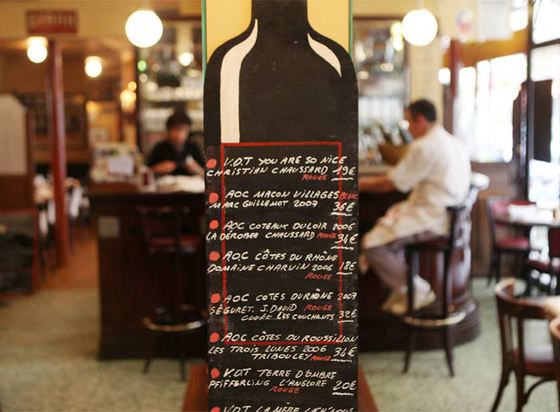 V.D.T YOU ARE SO NICE
CHRISTIAN CHAUSSARD 19€
ROUGE
AOC MACON VILLAGES BLANC
MARC GUILLEMOT 2007 36€
AOC COTEAUX DU LOIR 2006
LA DEROBEE CHAUSSARD ROUGE 34€
AOC CÔTES DU RHÔNE
DOMAINE CHARVIN 2006 18€
ROUGE
AOC COTES DU RHÔNE 2007
SÉGURET. J. DAVID ROUGE
CUVÉE LES COUCHANTS 32€
AOC CÔTES DU ROUSSILLON
LES TROIS LUNES 2006 34€
TRIBOULEY ROUGE
V.D.T TERRE D'OMBRE
PFIFFERLING L'ANGLORE 20€
ROUGE
V.D.T LA